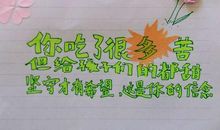 你吃了很多苦
但给孩子们的都甜
坚守才有希望,这是你的信念